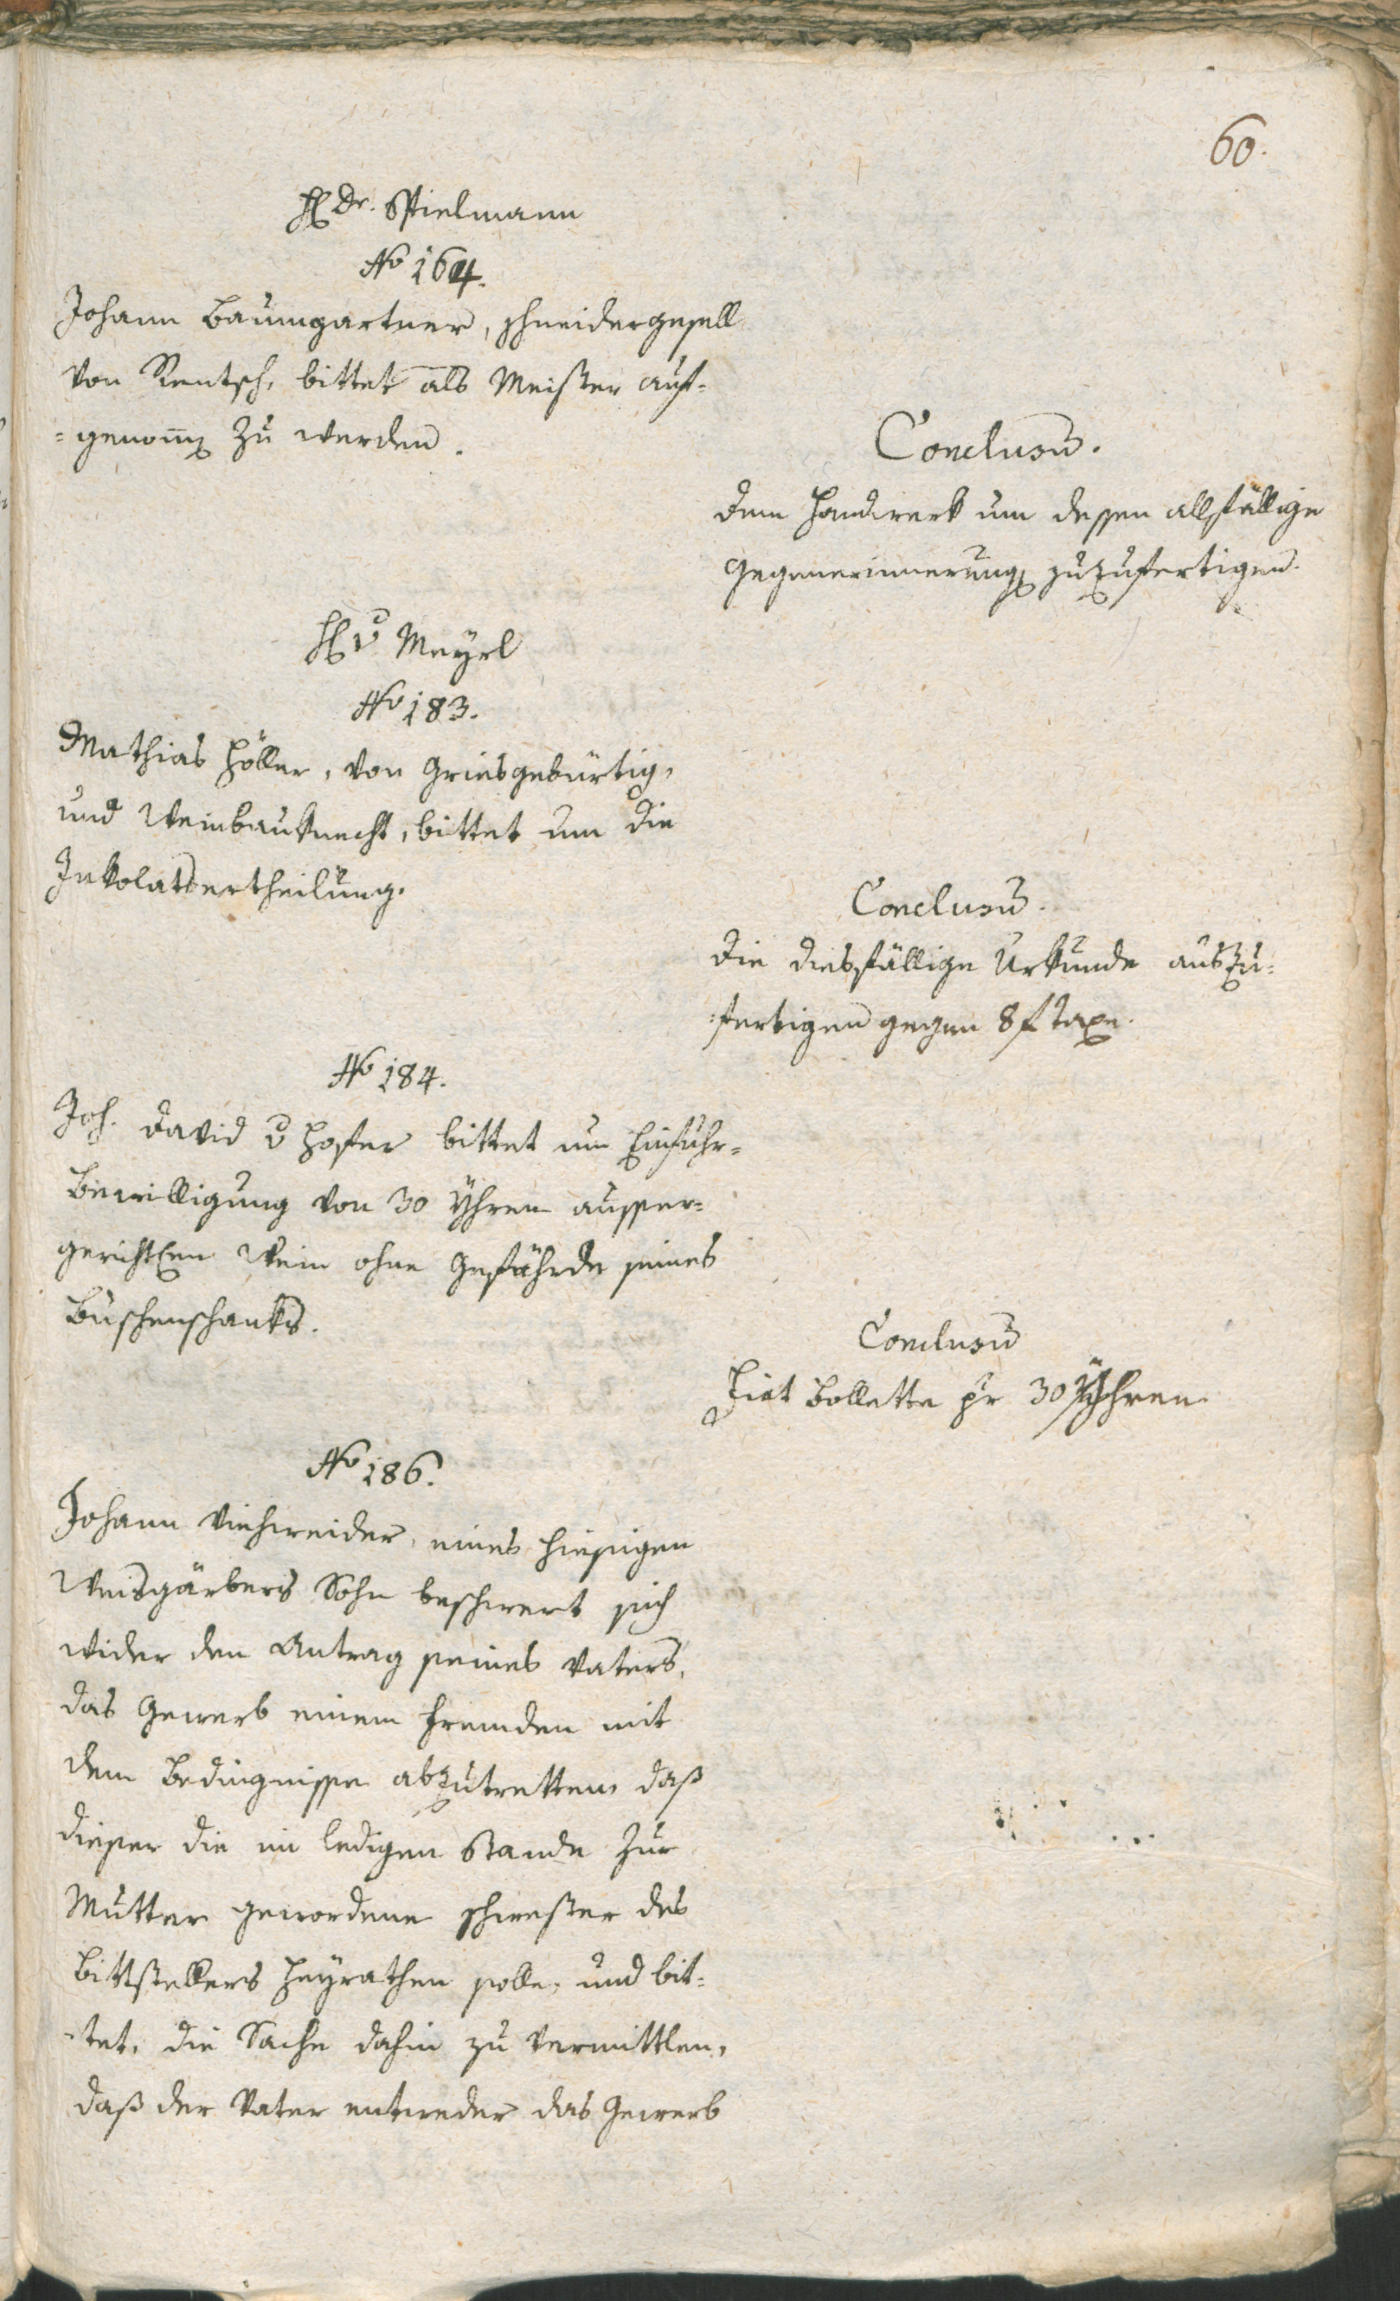 60.
H Dr. Stielmann
No 164.
Johann Baumgartner, Schneidergesell
von Rentsch, bittet als Meister auf-
=genom̅en zu werden.
Conclusu̅.
Dem Handwerk um dessen allfällige
Gegenerinnerung zuzufertigen.
H v Meyrl
No 183.
Mathias Höller, von Gries gebürtig,
und Weinbauknecht, bittet um die
Inkolatsertheilung.
Conclusu̅.
Die diesfällige Urkunde auszu=
=fertigen gegen 8 f Taxe.
No 184.
Joh. David v Hofer bittet um Einfuhr=
Bewilligung von 30 Yhren ausser=
gerichtlen Wein ohne Gefährde seines
Buschenschanks.
Conclusu̅
Fiat Bollette pr 30 Yhren
No 186.
Johann Viehweider, eines hiesigen
Weisgärbers Sohn beschwert sich
wider den Antrag seines Vaters,
das Gewerb einem Fremden mit
dem Bedingnisse abzutretten, daß
dieser die im ledigen Stande zur
Mutter gewordene Schwester des
Bittstellers heyrathen solle, und bit=
=tet, die Sache dahin zu vermittlen,
daß der Vater entweder das Gewerb